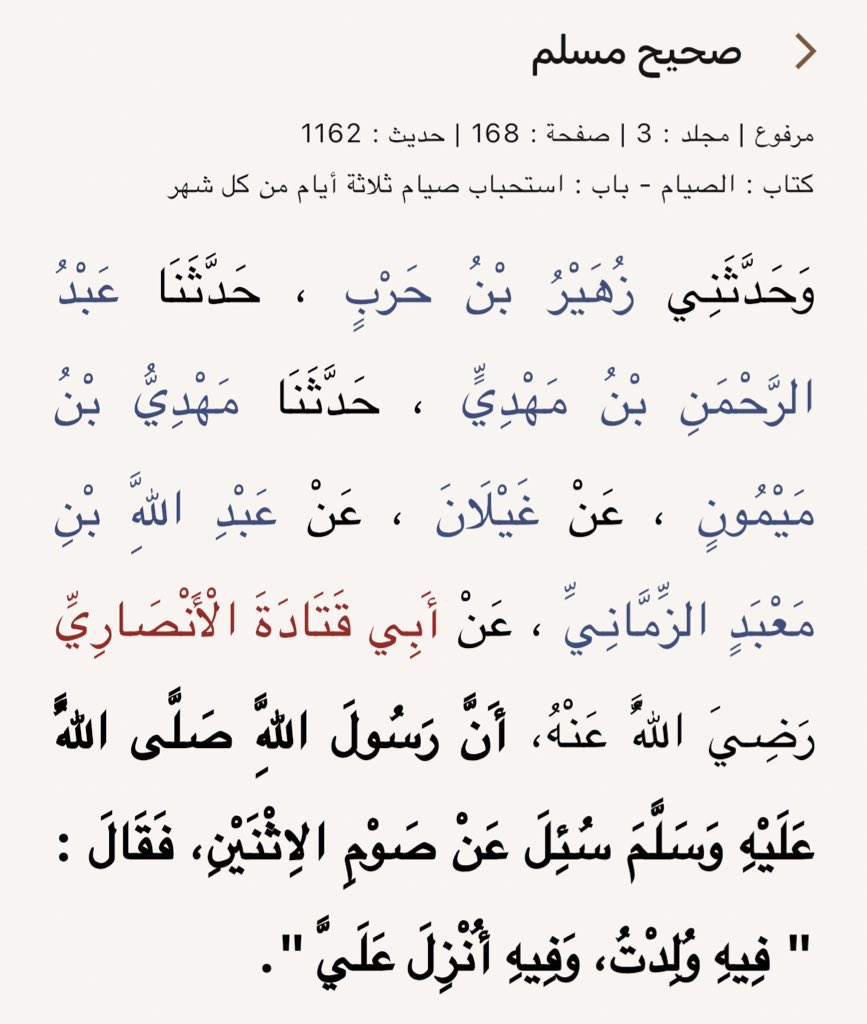 صحيح مسلم
مرفوع | مجلد : 3 | صفحة : 168 | حديث : 1162
كتاب : الصيام - باب : استحباب صيام ثلاثة أيام من كل شهر
وَحَدَّثَنِي زُهَيْرُ بْنُ حَرْبٍ ، حَدَّثَنَا عَبْدُ
الرَّحْمَنِ بْنُ مَهْدِيٍّ ، حَدَّثَنَا مَهْدِيُّ بْنُ
مَيْمُونٍ ، عَنْ غَيْلَانَ ، عَنْ عَبْدِ اللَّهِ بْنِ
مَعْبَدٍ الزِّمَّانِيِّ ، عَنْ أَبِي قَتَادَةَ الْأَنْصَارِيِّ
رَضِيَ اللَّهُ عَنْهُ، أَنَّ رَسُولَ اللَّهِ صَلَّى اللَّهُ
عَلَيْهِ وَسَلَّمَ سُئِلَ عَنْ صَوْمِ الِاثْنَيْنِ، فَقَالَ :
" فِيهِ وُلِدْتُ، وَفِيهِ أُنْزِلَ عَلَيَّ ".